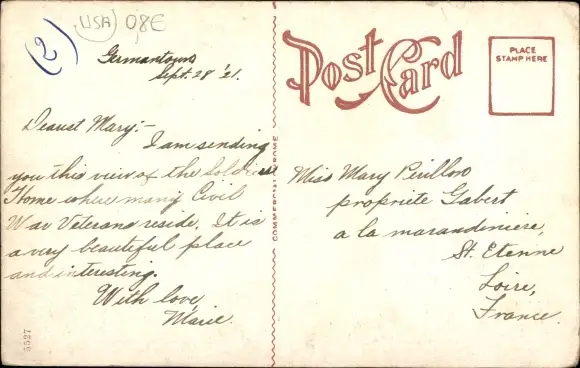 (2)
USA
08E
Germantown
Sept. 28 '21.
Dearest Mary:-
I am sending
you this view of the Soldiers
Home where many Civil
War Veterans reside. It is
a very beautiful place
and interesting.
With love,
Marie.
5527
COMMERCIALCHROME
Post Card
PLACE
STAMP HERE
Miss Mary Perillon
propriete Gabert
a la marandiniere,
St. Etenne
Loire,
France.